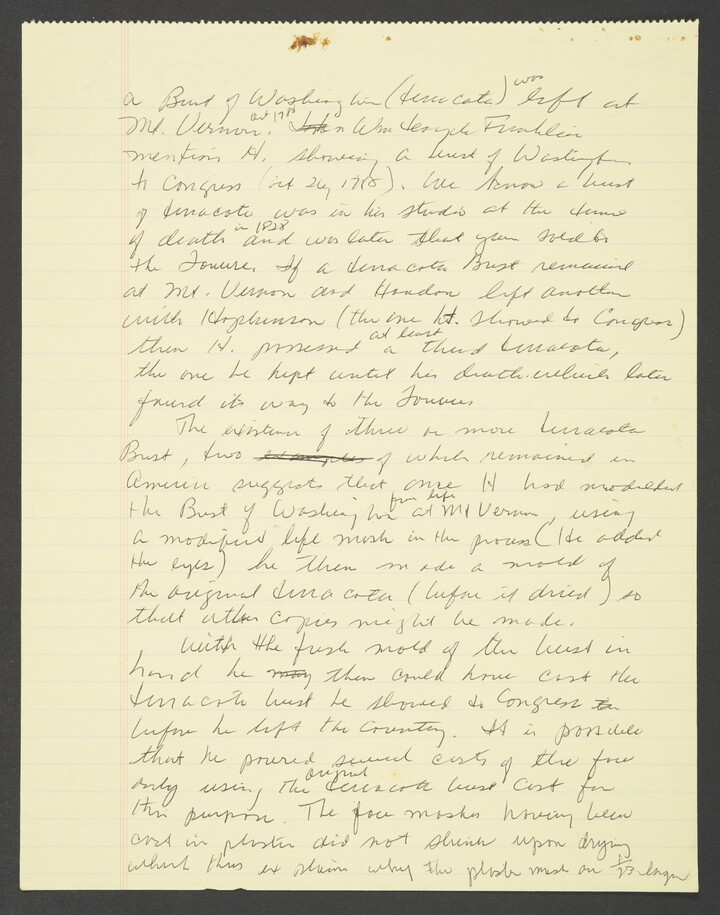 a Bust of Washington (terracota) was left at
Mt. Vernon. Oct 1785 Wm Temple Franklin
mentions H. showing a bust of Washington
to Congress (oct 26, 1785). We know a bust
of terracota was in his studio at the time
of death in 1828 and was later that year sold to
the Louvre. If a terracota Bust remained
at Mt. Vernon and Houdon left another
with Hopkinson (the one H. showed to Congress)
then H. possessed at least a third terracota,
the one he kept until his death which later
found its way to the Louvre
The existence of three or more terracota
Bust, two examples of which remained in
America suggests that once H had modelled
the Bust of Washington from life at Mt Vernon, using
a modified life mask in the process (He added
the eyes) he then made a mold of
the original terracota (before it dried) so
that other copies might be made.
With the fresh mold of the bust in
hand he may then could have cast the
terracota bust he showed to Congress
before he left the Country. It is possible
that he poured several casts of the face
only using the original terracota bust cast for
this purpose. The face masks having been
cast in plaster did not shrink upon drying
which thus explains why the plaster mask are larger